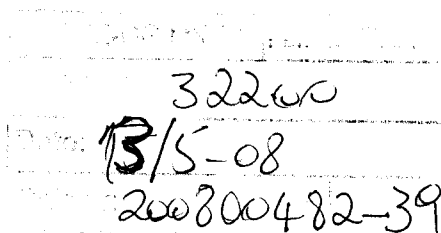 32200
Dato: 13/5-08
200800482-39